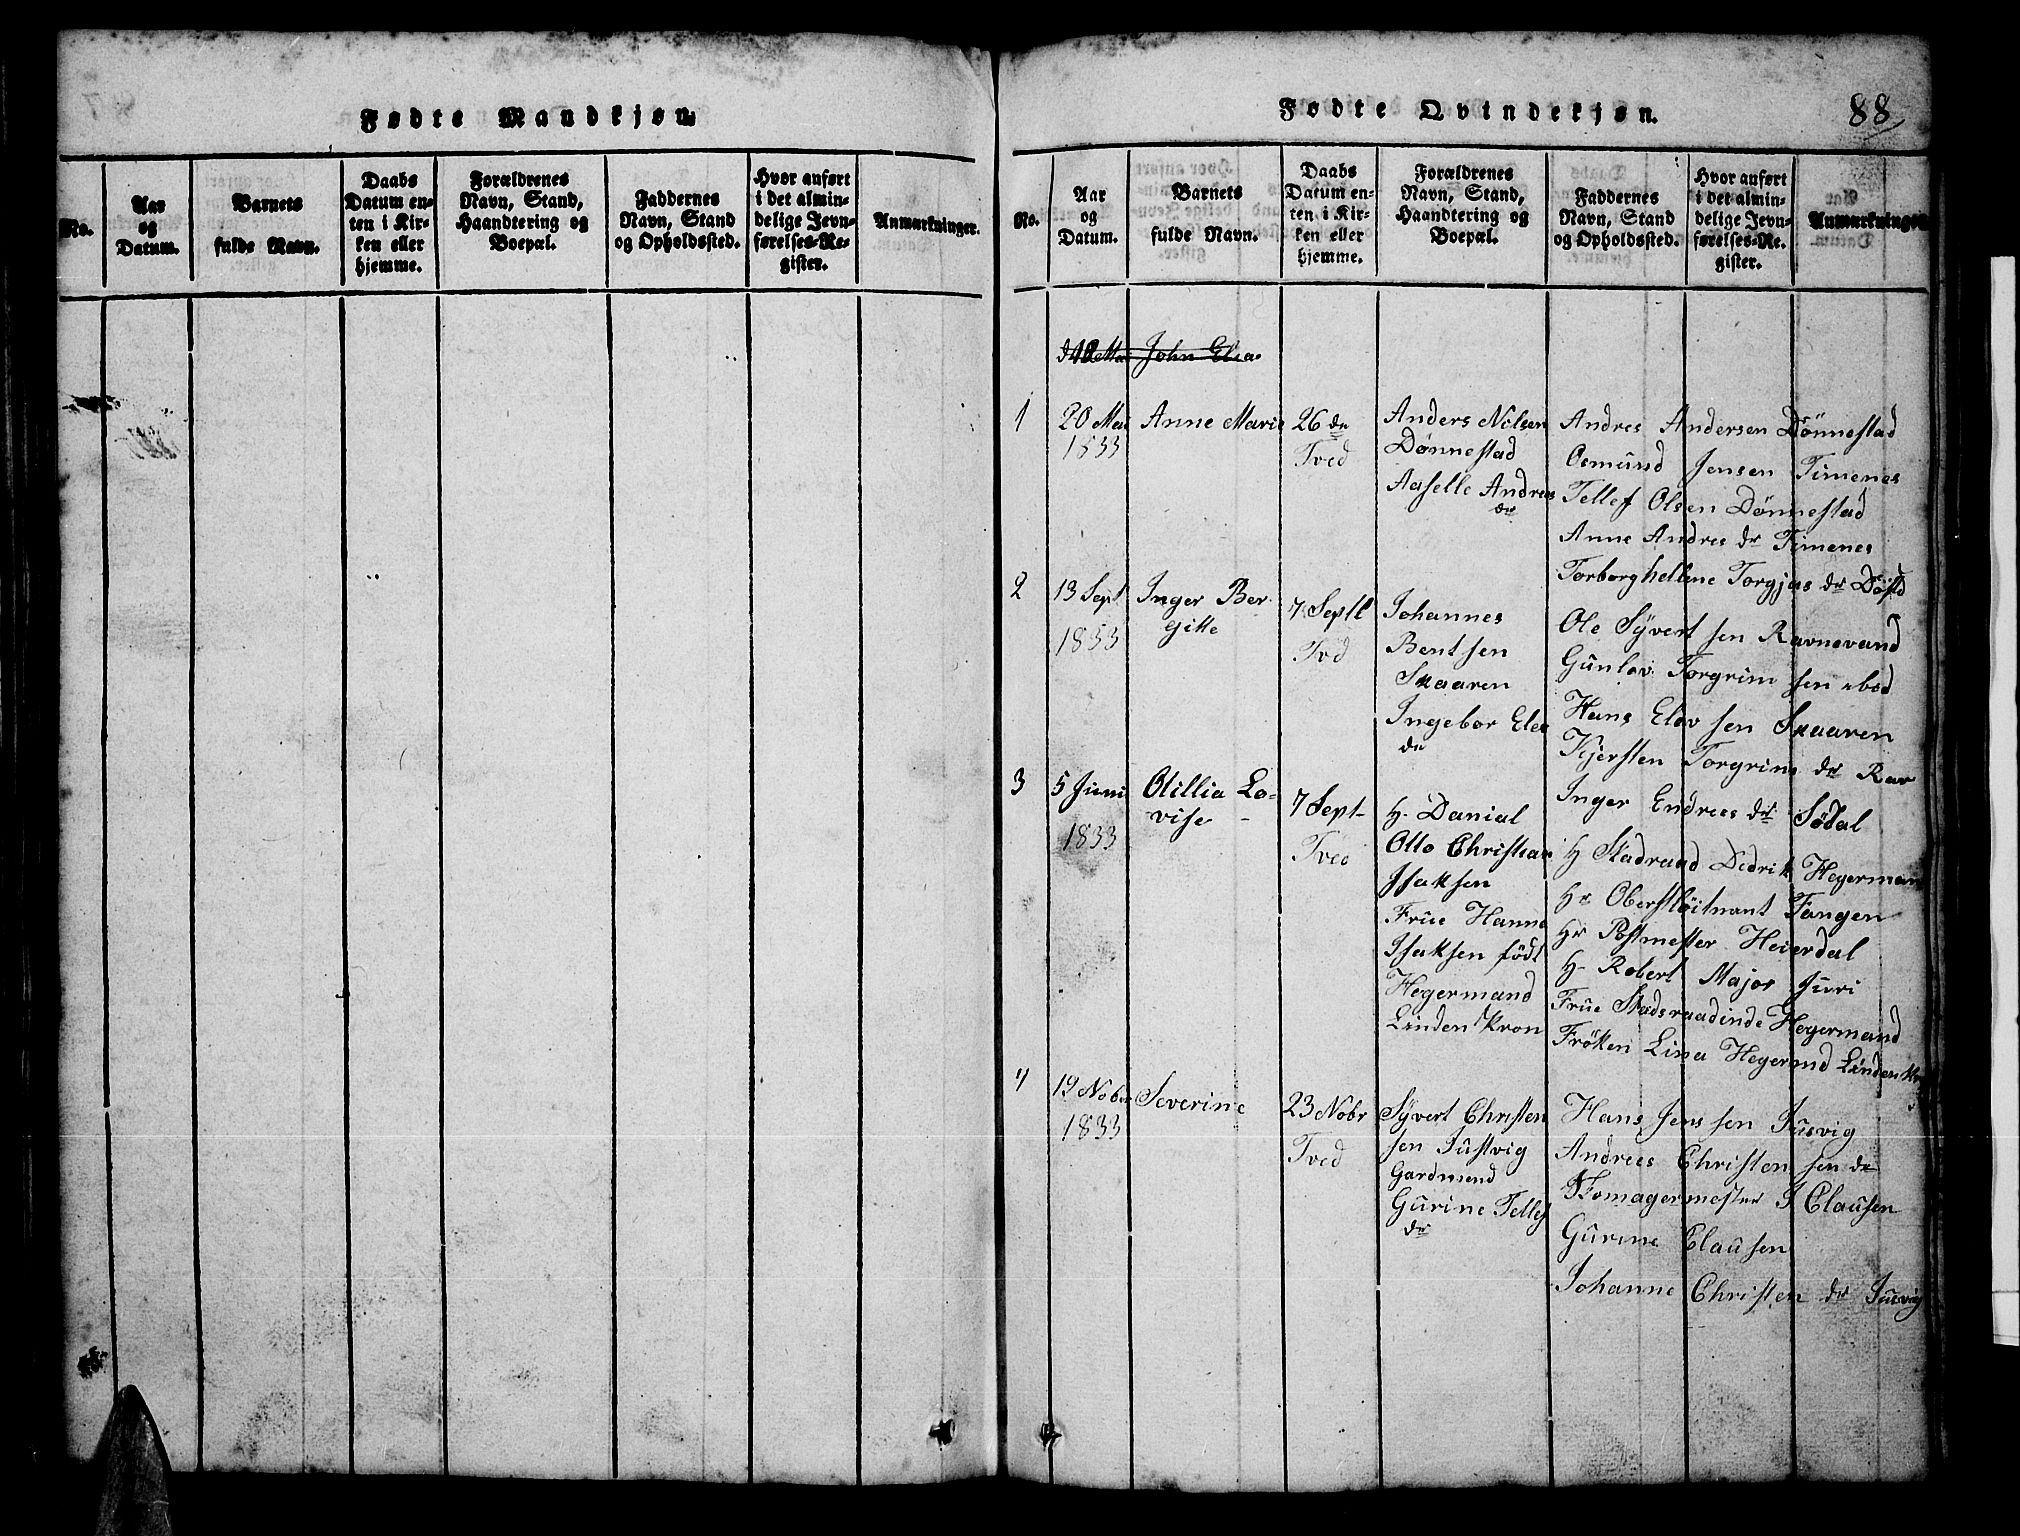 Fødte Mandkjøn.
No.
Aar
og
Datum.
Barnets
fulde Navn.
Daabs
Datum en-
ten i Kir-
ken eller
hjemme.
Forældrenes
Navn, Stand,
Haandtering og
Boepæl.
Faddernes
Navn, Stand
og Opholdssted.
Hvor anført
i det almin-
delige Jevn-
førelses-Re-
gister.
Anmærkninger.
Fødte Qvindekjøn.
88
No.
Aar
og
Datum.
Barnets
fulde Navn.
Daabs
Datum en-
ten i Kir-
ken eller
hjemme.
Forældrenes
Navn, Stand,
Haandtering og
Boepæl.
Faddernes
Navn, Stand
og Opholdssted.
Hvor anført
i det almin-
delige Jevn-
førelses-Re-
gister.
Anmærkninger
John Elia
1
20 Mai
1833
Anne Marie
26 de
Tved
Anders Nilsen
Dönnestad
Aaselle Andres
dr
Andres Andersen Dönnestad
Osmund Jensen Timenes
Tellef Olsen Dönnestad
Anne Andres dr Timenes
Torborghellene Torgjus dr Döstd
2
13 Sept
1833
Inger Ber
gitte
7 Septb
Tvd
Johannes
Bentsen
Skaaren
Ingebor Elev
dr
Ole Syvert sen Ravnevand
Gunlov Torgrim sen ibed
Hans Elov sen Skaaren
Kjersten Torgrims dr Rav
Inger Endrees dr Södal
3
5 Juni
1833
Otillia Lo-
vise
7 Sept
Tved
H. Danial
Otto Christian
Isaksen
Frue Hanne
Isaksen födt
Hegermand
Linden Kron
H Stadraad Dedrik Hegerman
Hr Oberstlöitnant Fangen
Hr Postmester Heierdal
H Robert Major Juri
Frue Stadsraadinde Hegermand
Fröken Lina Hegermd Lindenkr
4
19 Nobr
1833
Severine
23 Nobr
Tved
Syvert Christen
sen Justvig
Gardmend
Gurine Tellef
dr
Hans Jens sen Jusvig
Andrees Christen sen de
Skomagermester J Clausen
Gurine Clausen
Johanne Christen dr Jusvig